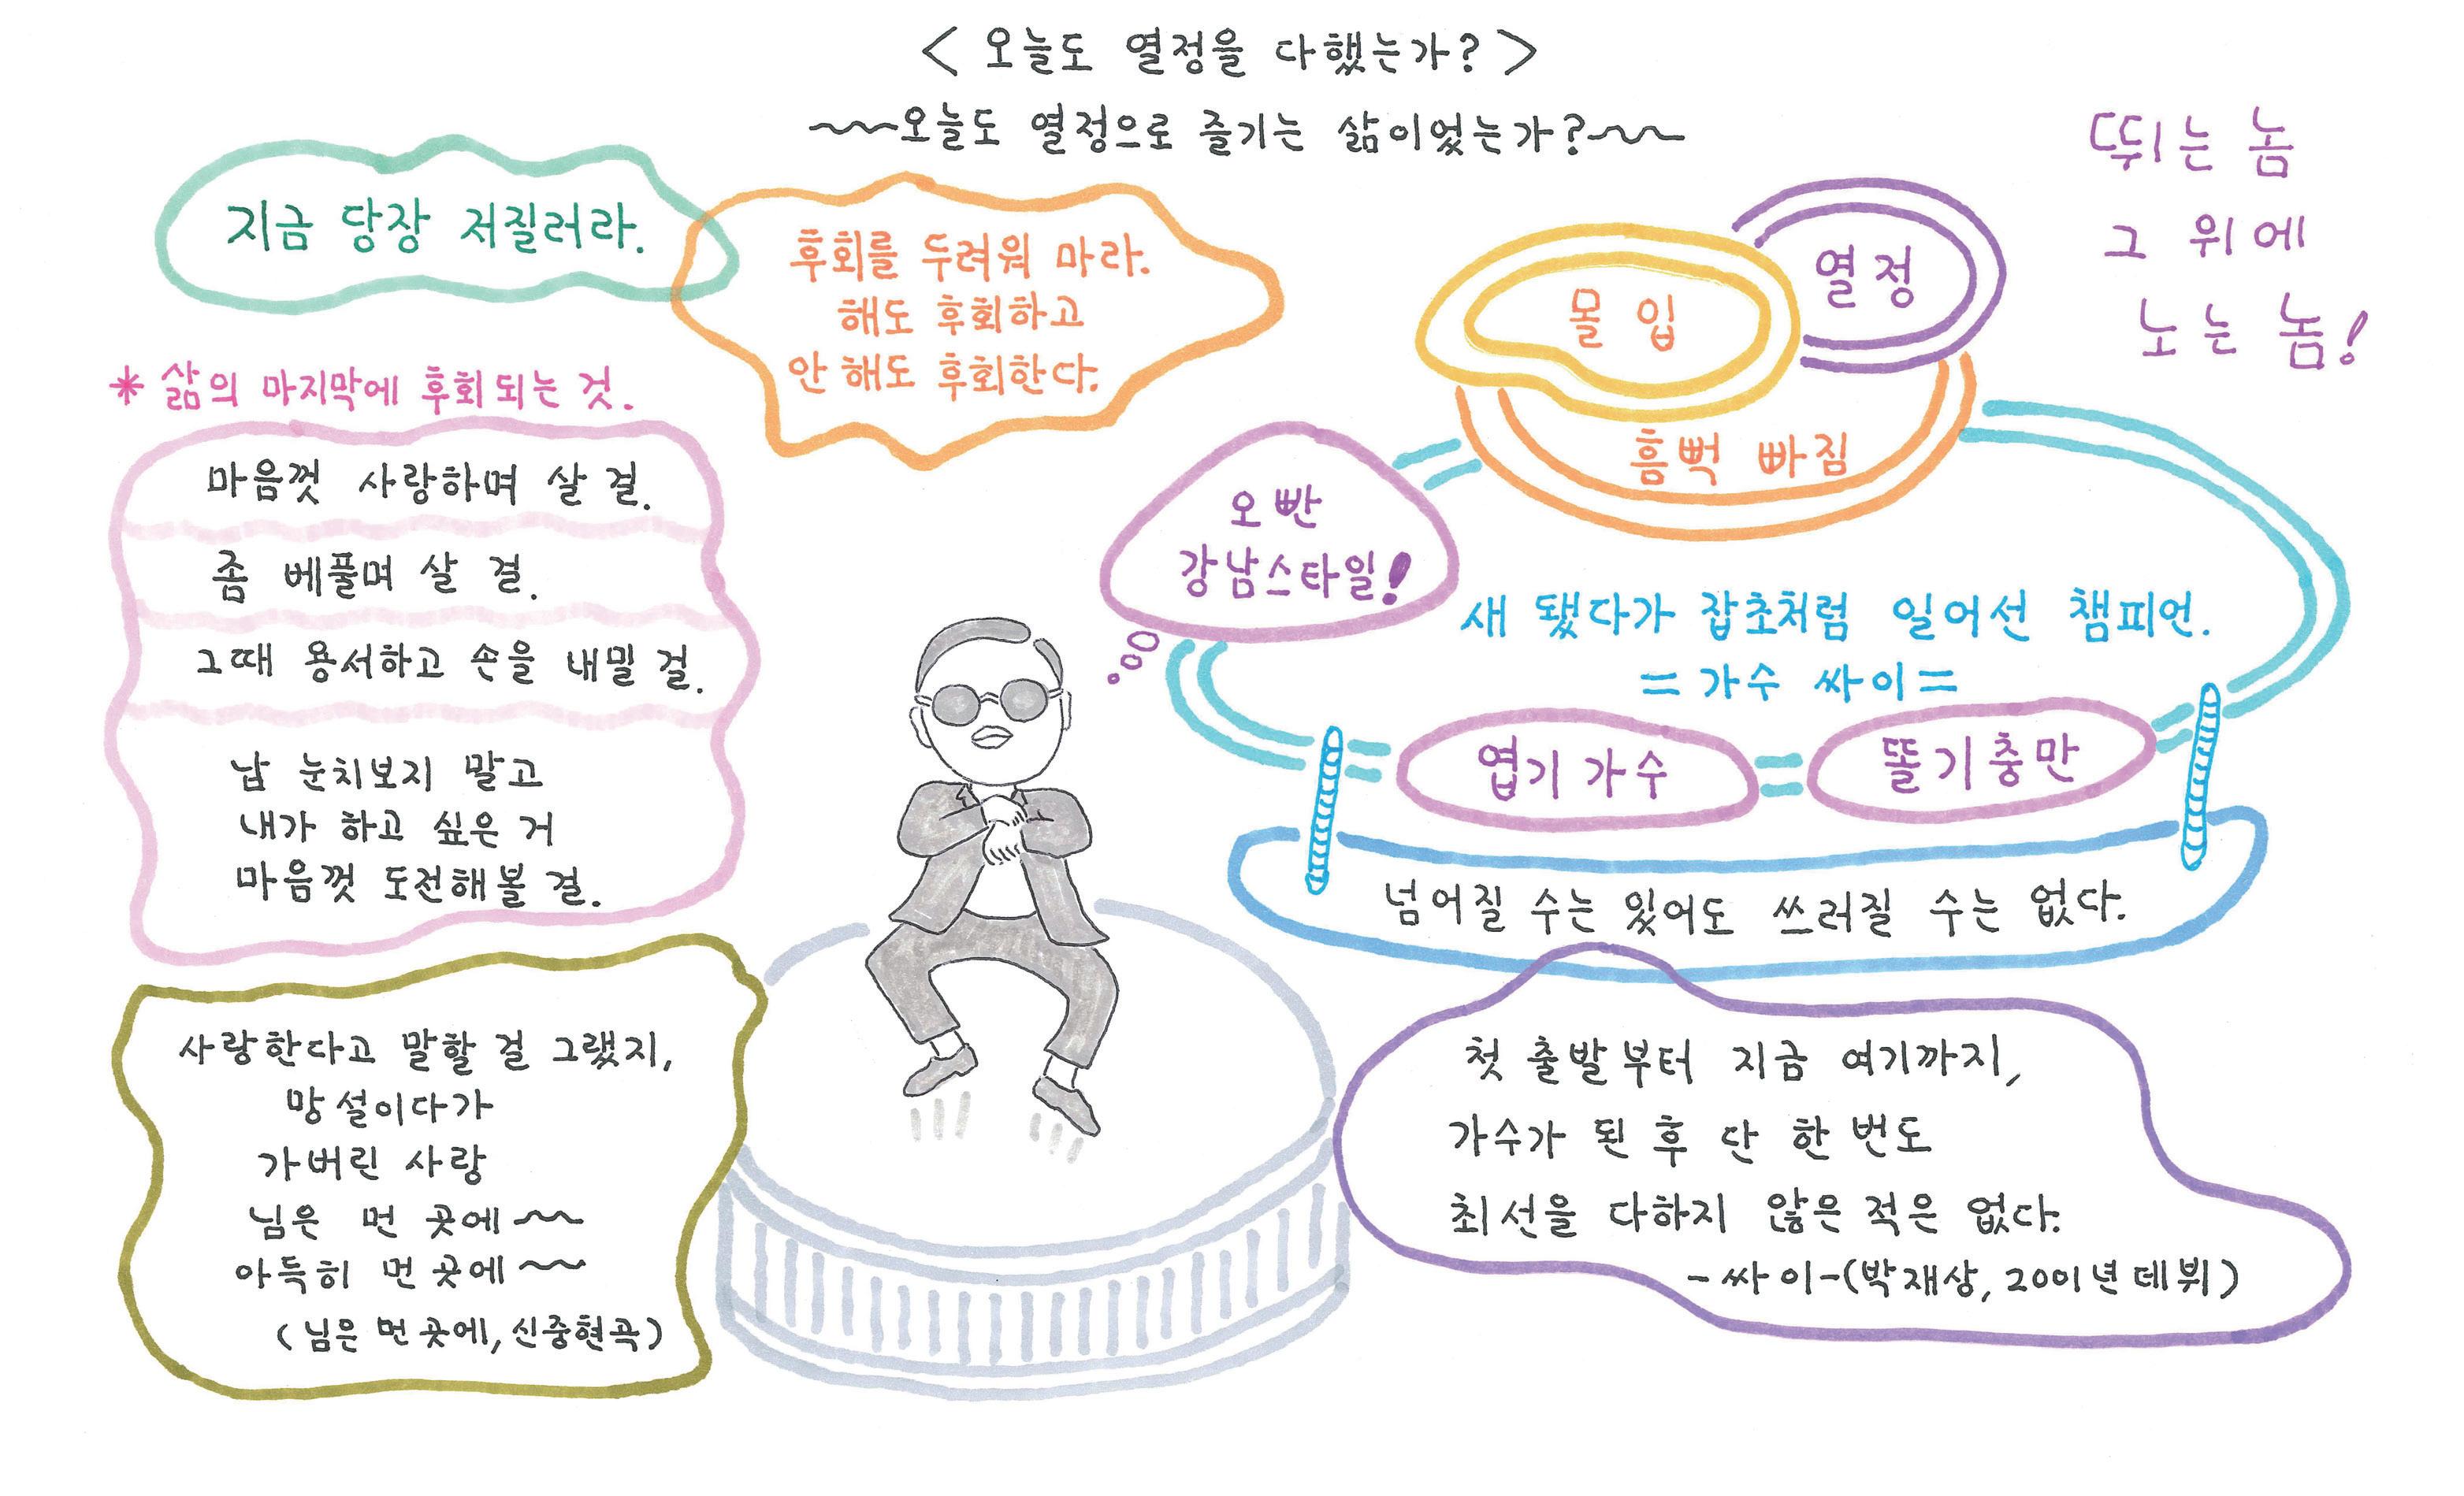 < 오늘도 열정을 다했는가? >
~~오늘도 열정으로 즐기는 삶이었는가?~~
지금 당장 저질러라.
후회를 두려워 마라.
해도 후회하고
안 해도 후회한다.
* 삶의 마지막에 후회되는 것.
마음껏 사랑하며 살 걸.
좀 베풀며 살 걸.
그때 용서하고 손을 내밀 걸.
남 눈치보지 말고
내가 하고 싶은 거
마음껏 도전해볼 걸.
사랑한다고 말할 걸 그랬지,
망설이다가
가버린 사랑
님은 먼 곳에~~
아득히 먼 곳에~~
(님은 먼 곳에, 신중현곡)
뛰는 놈
그 위에
노는 놈!
열정
몰입
흠뻑 빠짐
오빤
강남스타일!
새 됐다가 잡초처럼 일어선 챔피언.
= 가수 싸이 =
엽기 가수
똘기충만
넘어질 수는 있어도 쓰러질 수는 없다.
첫 출발부터 지금 여기까지,
가수가 된 후 단 한 번도
최선을 다하지 않은 적은 없다.
-싸이-(박재상, 2001년 데뷔)